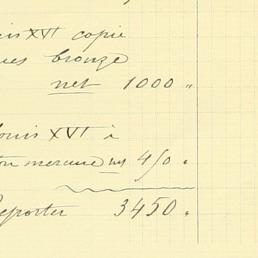 uis XVI copie
ues bronze
net 1000 "
Louis XVI à
ton mercure net 450 "
Reporter 3450 "